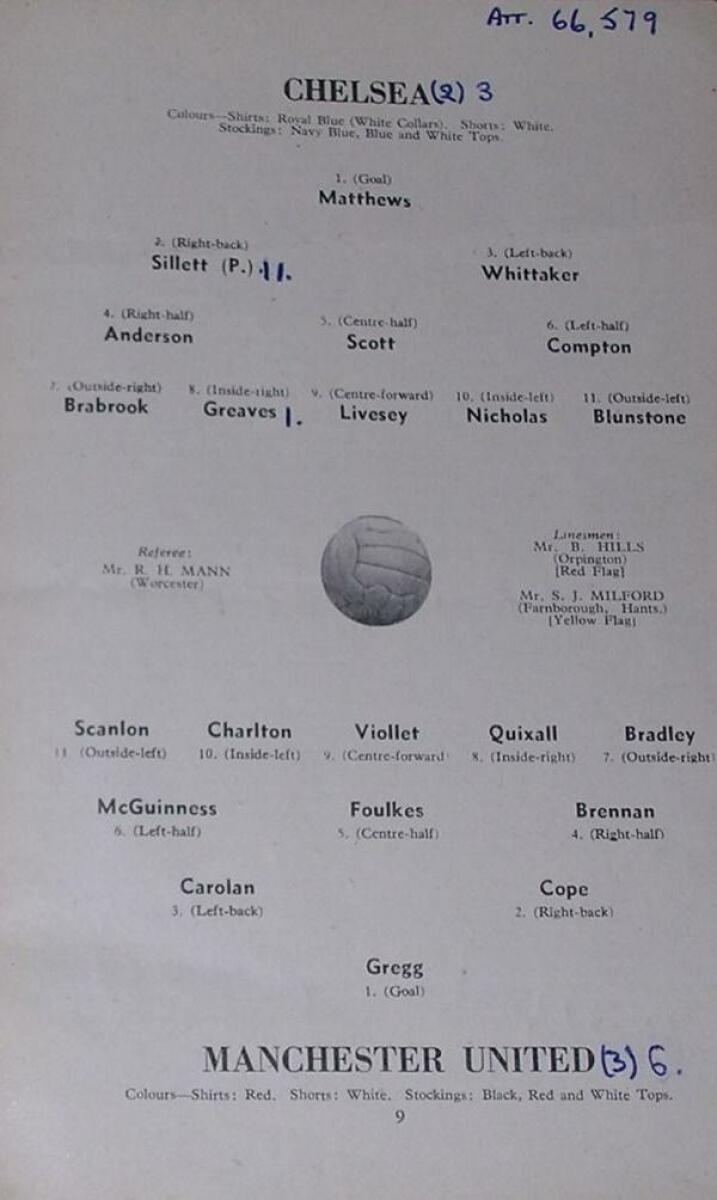 ATT. 66,579
CHELSEA (2) 3
Colours—Shirts: Royal Blue (White Collars). Shorts: White.
Stockings: Navy Blue, Blue and White Tops.
1. (Goal)
Matthews
2. (Right-back) 3. (Left-back)
Sillett (P.) 11. Whittaker
4. (Right-half) 5. (Centre-half) 6. (Left-half)
Anderson Scott Compton
7. (Outside-right) 8. (Inside-right) 9. (Centre-forward) 10. (Inside-left) 11. (Outside-left)
Brabrook Greaves 1. Livesey Nicholas Blunstone
Referee:
Mr. R. H. MANN
(Worcester)
Linesmen:
Mr. B. HILLS
(Orpington)
[Red Flag]
Mr. S. J. MILFORD
(Farnborough, Hants.)
[Yellow Flag]
Scanlon Charlton Viollet Quixall Bradley
11 (Outside-left) 10. (Inside-left) 9. (Centre-forward) 8. (Inside-right) 7. (Outside-right)
McGuinness Foulkes Brennan
6. (Left-half) 5. (Centre-half) 4. (Right-half)
Carolan Cope
3. (Left-back) 2. (Right-back)
Gregg
1. (Goal)
MANCHESTER UNITED (3) 6.
Colours—Shirts: Red. Shorts: White. Stockings: Black, Red and White Tops.
9